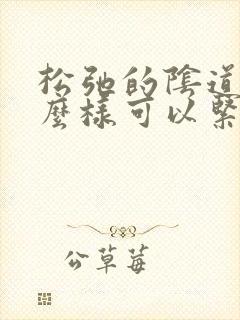 松弛的陰道
麼樣可以緊
公草莓